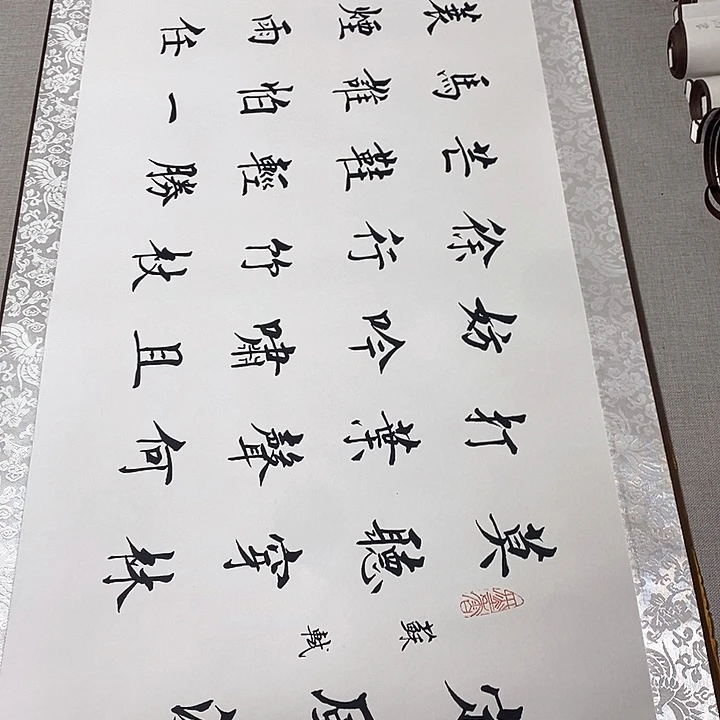 蘇軾
莫聽穿林
打葉聲何
妨吟嘯且
徐行竹杖
芒鞋輕勝
馬誰怕一
蓑煙雨任